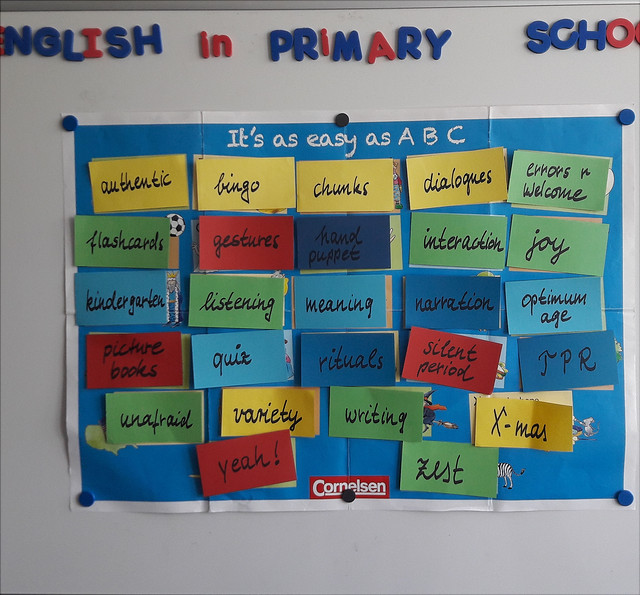 ENGLISH in PRIMARY SCHOO
It's as easy as A B C
authentic
bingo
chunks
dialogues
errors r
welcome
flashcards
gestures
hand
puppet
interaction
joy
kindergarten
listening
meaning
narration
optimum
age
picture
books
quiz
rituals
silent
period
TPR
unafraid
variety
writing
X-mas
yeah!
zest
Cornelsen